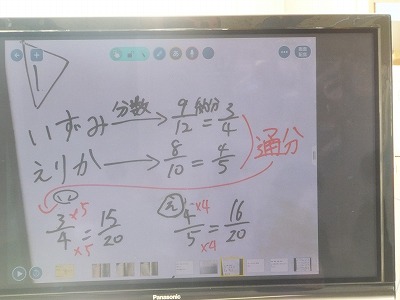 いずみ 分数 → 9/12 約分 = 3/4
えりか → 8/10 = 4/5
通分
い 3/4 ×5 ×5 = 15/20
え 4/5 ×4 ×4 = 16/20
Panasonic